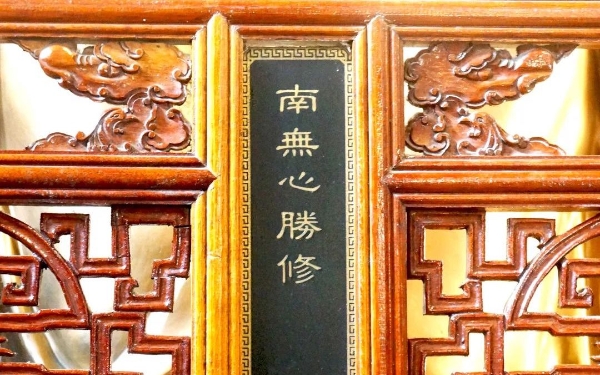 南無心勝修